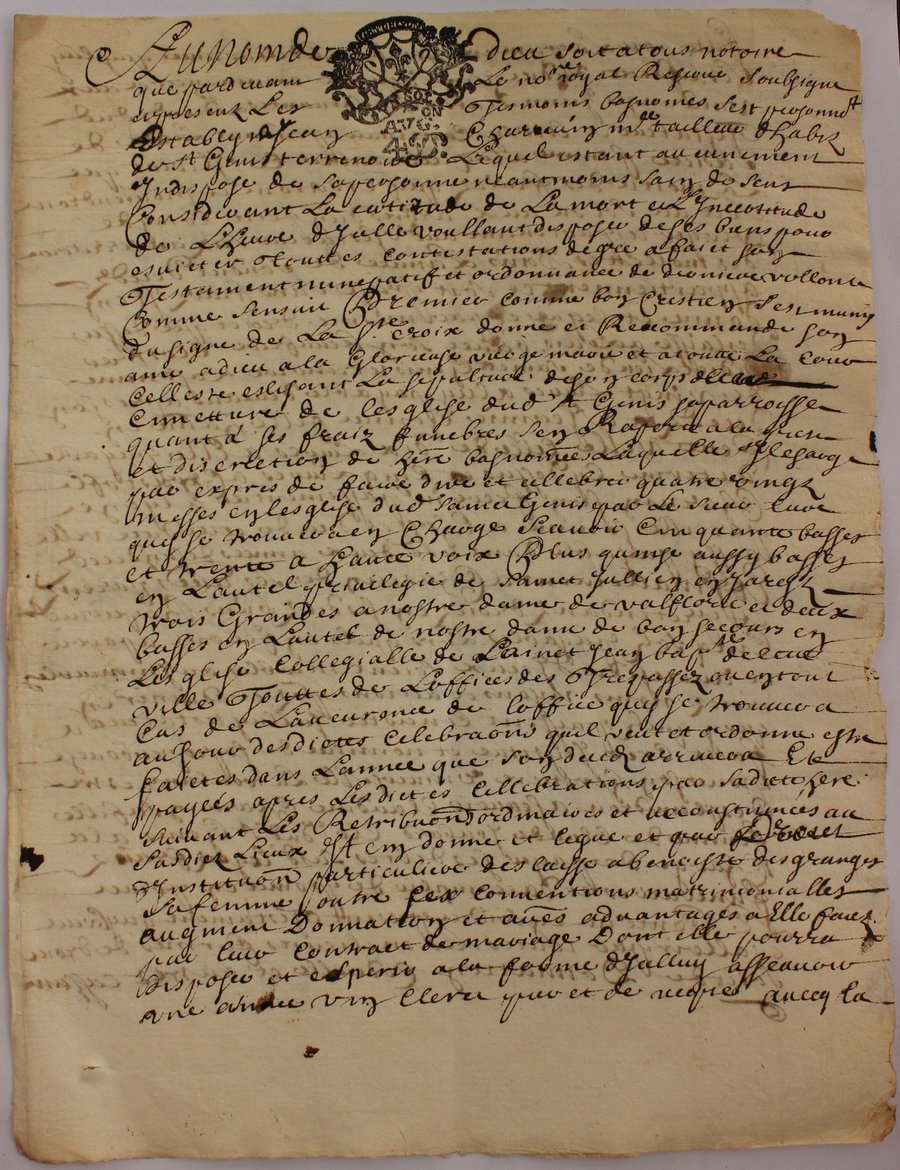 Au nom de dieu soit a tous notoire
que pardevant Le no.re royal Reserve soubsigne
en presence Les Tesmoins bas nomes sest personn.t
Establey Jean m.e tailleur dhabiz
de S.t Genis terrenoire Lequel estant aucunement
Indispose de sa personne neantmoins sain de sens
Considerant La certitude de La mort et L'Incertitude
de L'heure d'Icelle voullant disposer de ses biens pour
esviter Touttes contestations de gre a faict son
Testament nuncupatif et ordonnance de derniere vollonte
Comme sensuit Premier comme bon Crestien s'est muny
du signe de La s.te Croix donne et Recommande son
ame a dieu a la Glorieuse vierge marie et a toute La Cour
Celleste eslisant La sepulture de son corps
Cimettiere de lesglise dud S.t Genis sa parroisse
quant à ses fraix funebres sen Raporte a la
et discretion de bas nommee Laquelle Il charge
par expres de faire dire et cellebrer quatre vingz
messes en lesglise dud Sainct Genis par Le sieur Cure
quy se trouvera en Charge scavoir Cinquante basses
et trente a haute voix Plus quinze aussy basses
en Lautel privilegie de Sainct Jullien en Jarestz
trois Grandes a nostre dame de valflorie et deux
basses en Lautel de nostre dame de bon secours en
Lesglise Collegialle de Sainct Jean bap.te de
ville Touttes de L'office des Trepassez ou en tout
Cas de L'occurence de l'office quy se trouvera
au jour desdictes Celebraons quil veut et ordonne estre
faictes dans L'annee que son deceds arrivera Et
payées apres Lesdictes Cellebrations par sadicte
suivant Les Retribuons ordinaires et accoustumées au
susdict Lieux Et en donne et legue et par
d'Instituon particuliere delaisse a benoiste des granges
sa femme outre ses conventions matrimonialles
augment Donnation et autres advantages a Elle faicts
par leur contract de mariage Dont elle pourra
disposer et a la forme d'Icelluy asscavoir
une annee vin par et de avecq la